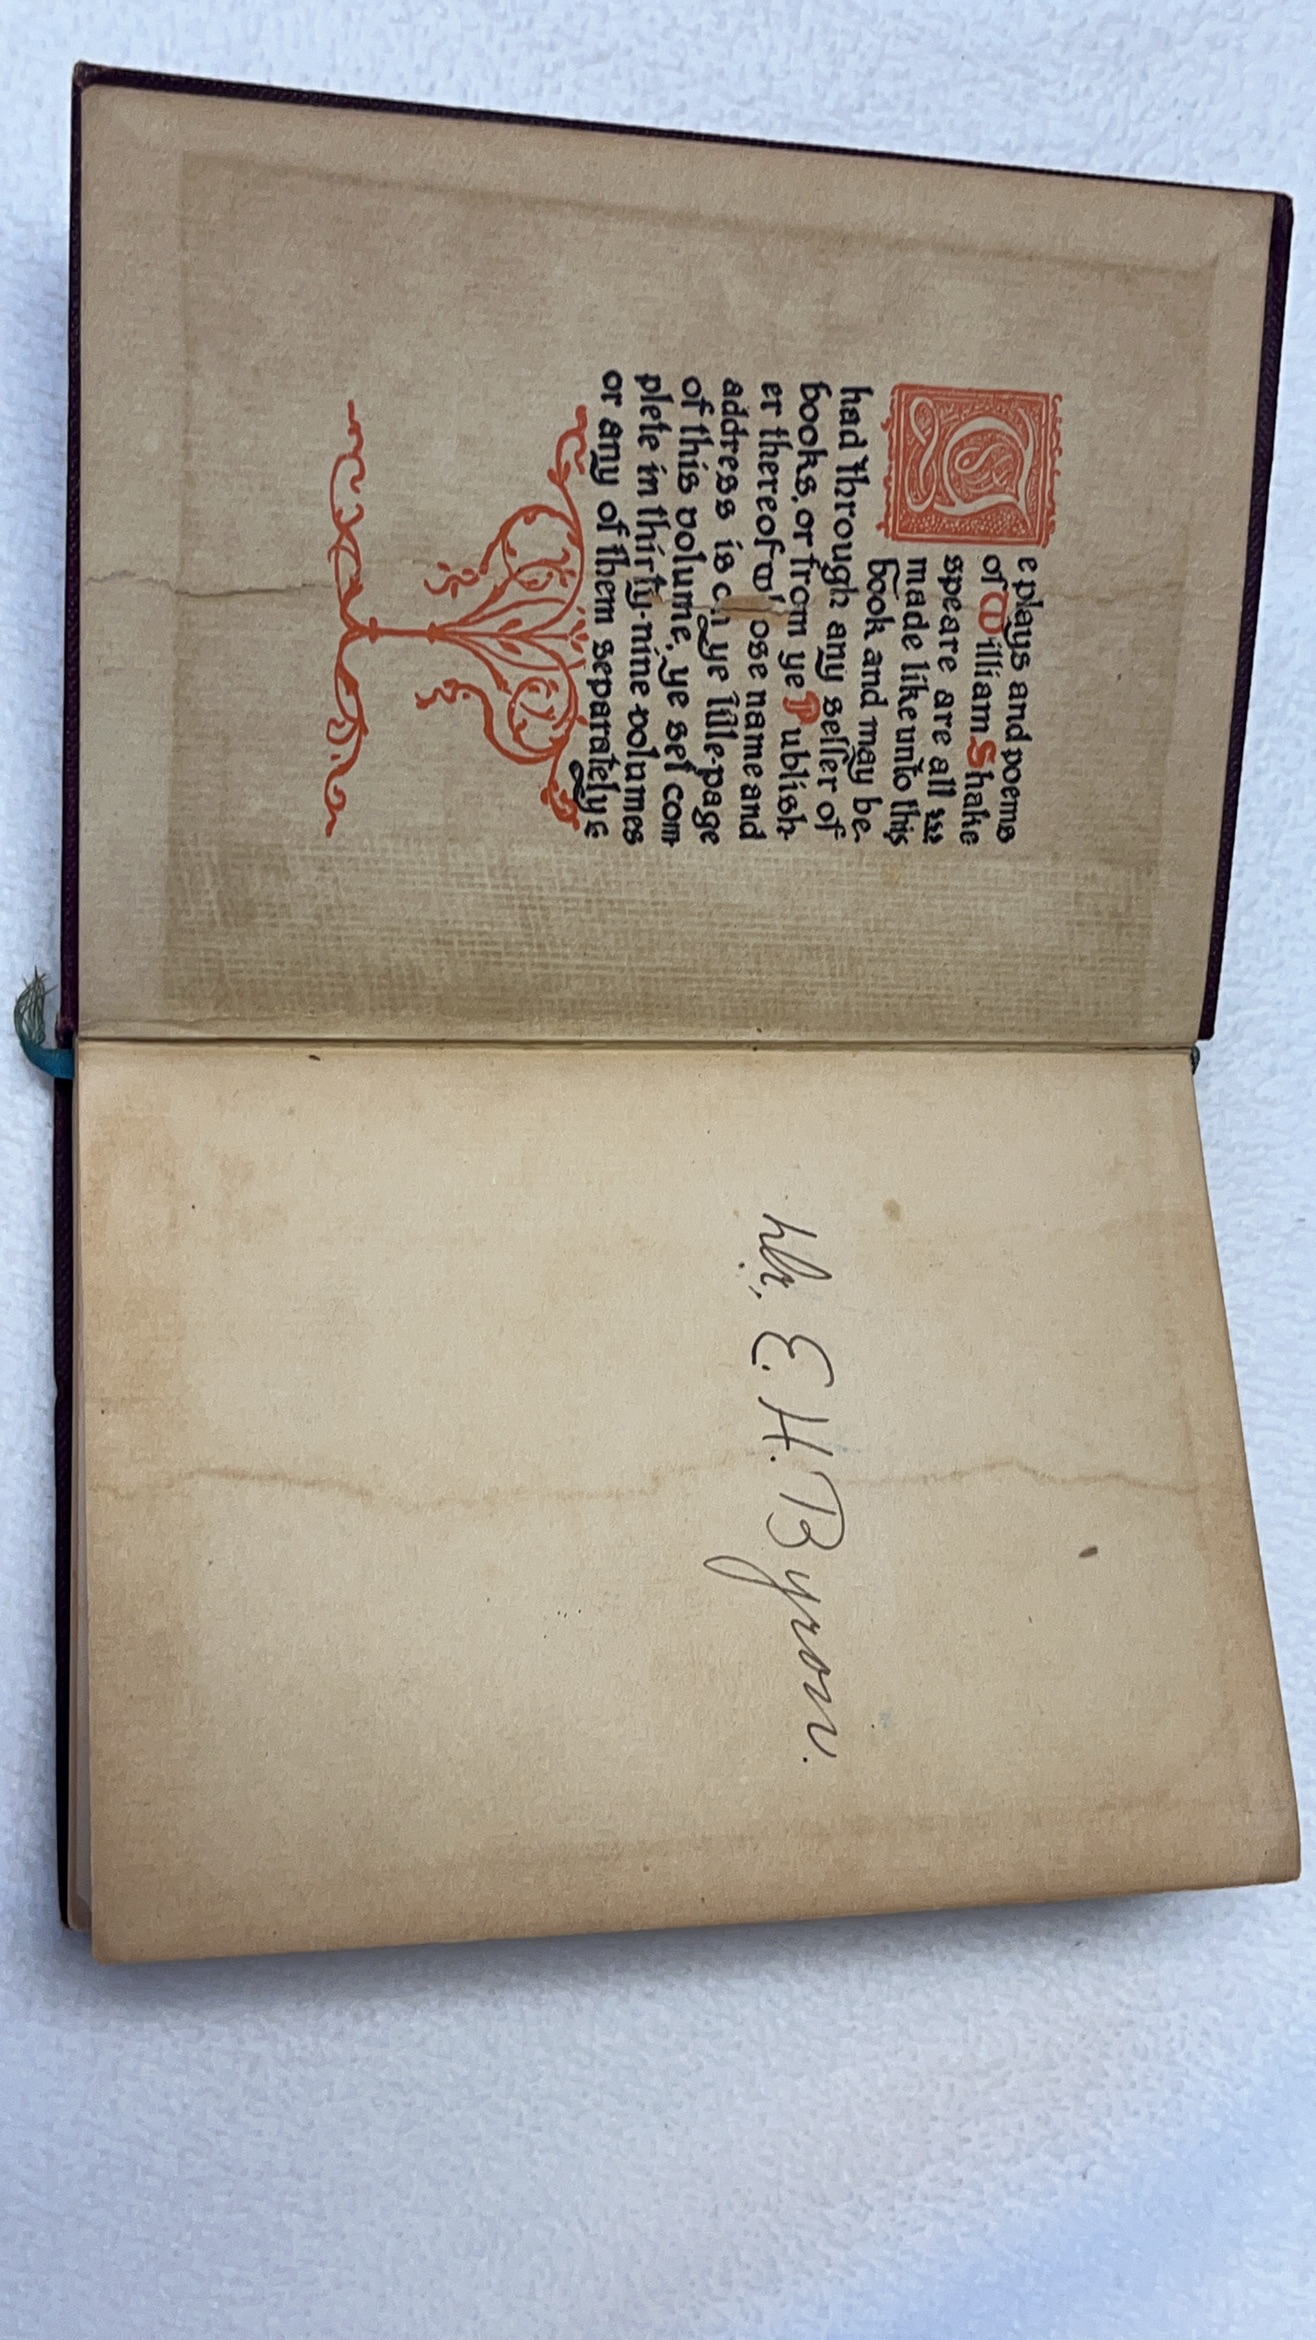 Ye plays and poems
of William Shake
speare are all
made like unto this
book and may be
had through any seller of
books, or from ye Publish-
er thereof whose name and
address is on ye title-page
of this volume, ye set com-
plete in thirty-nine volumes
or any of them separately
Mr. E. H. Byron.